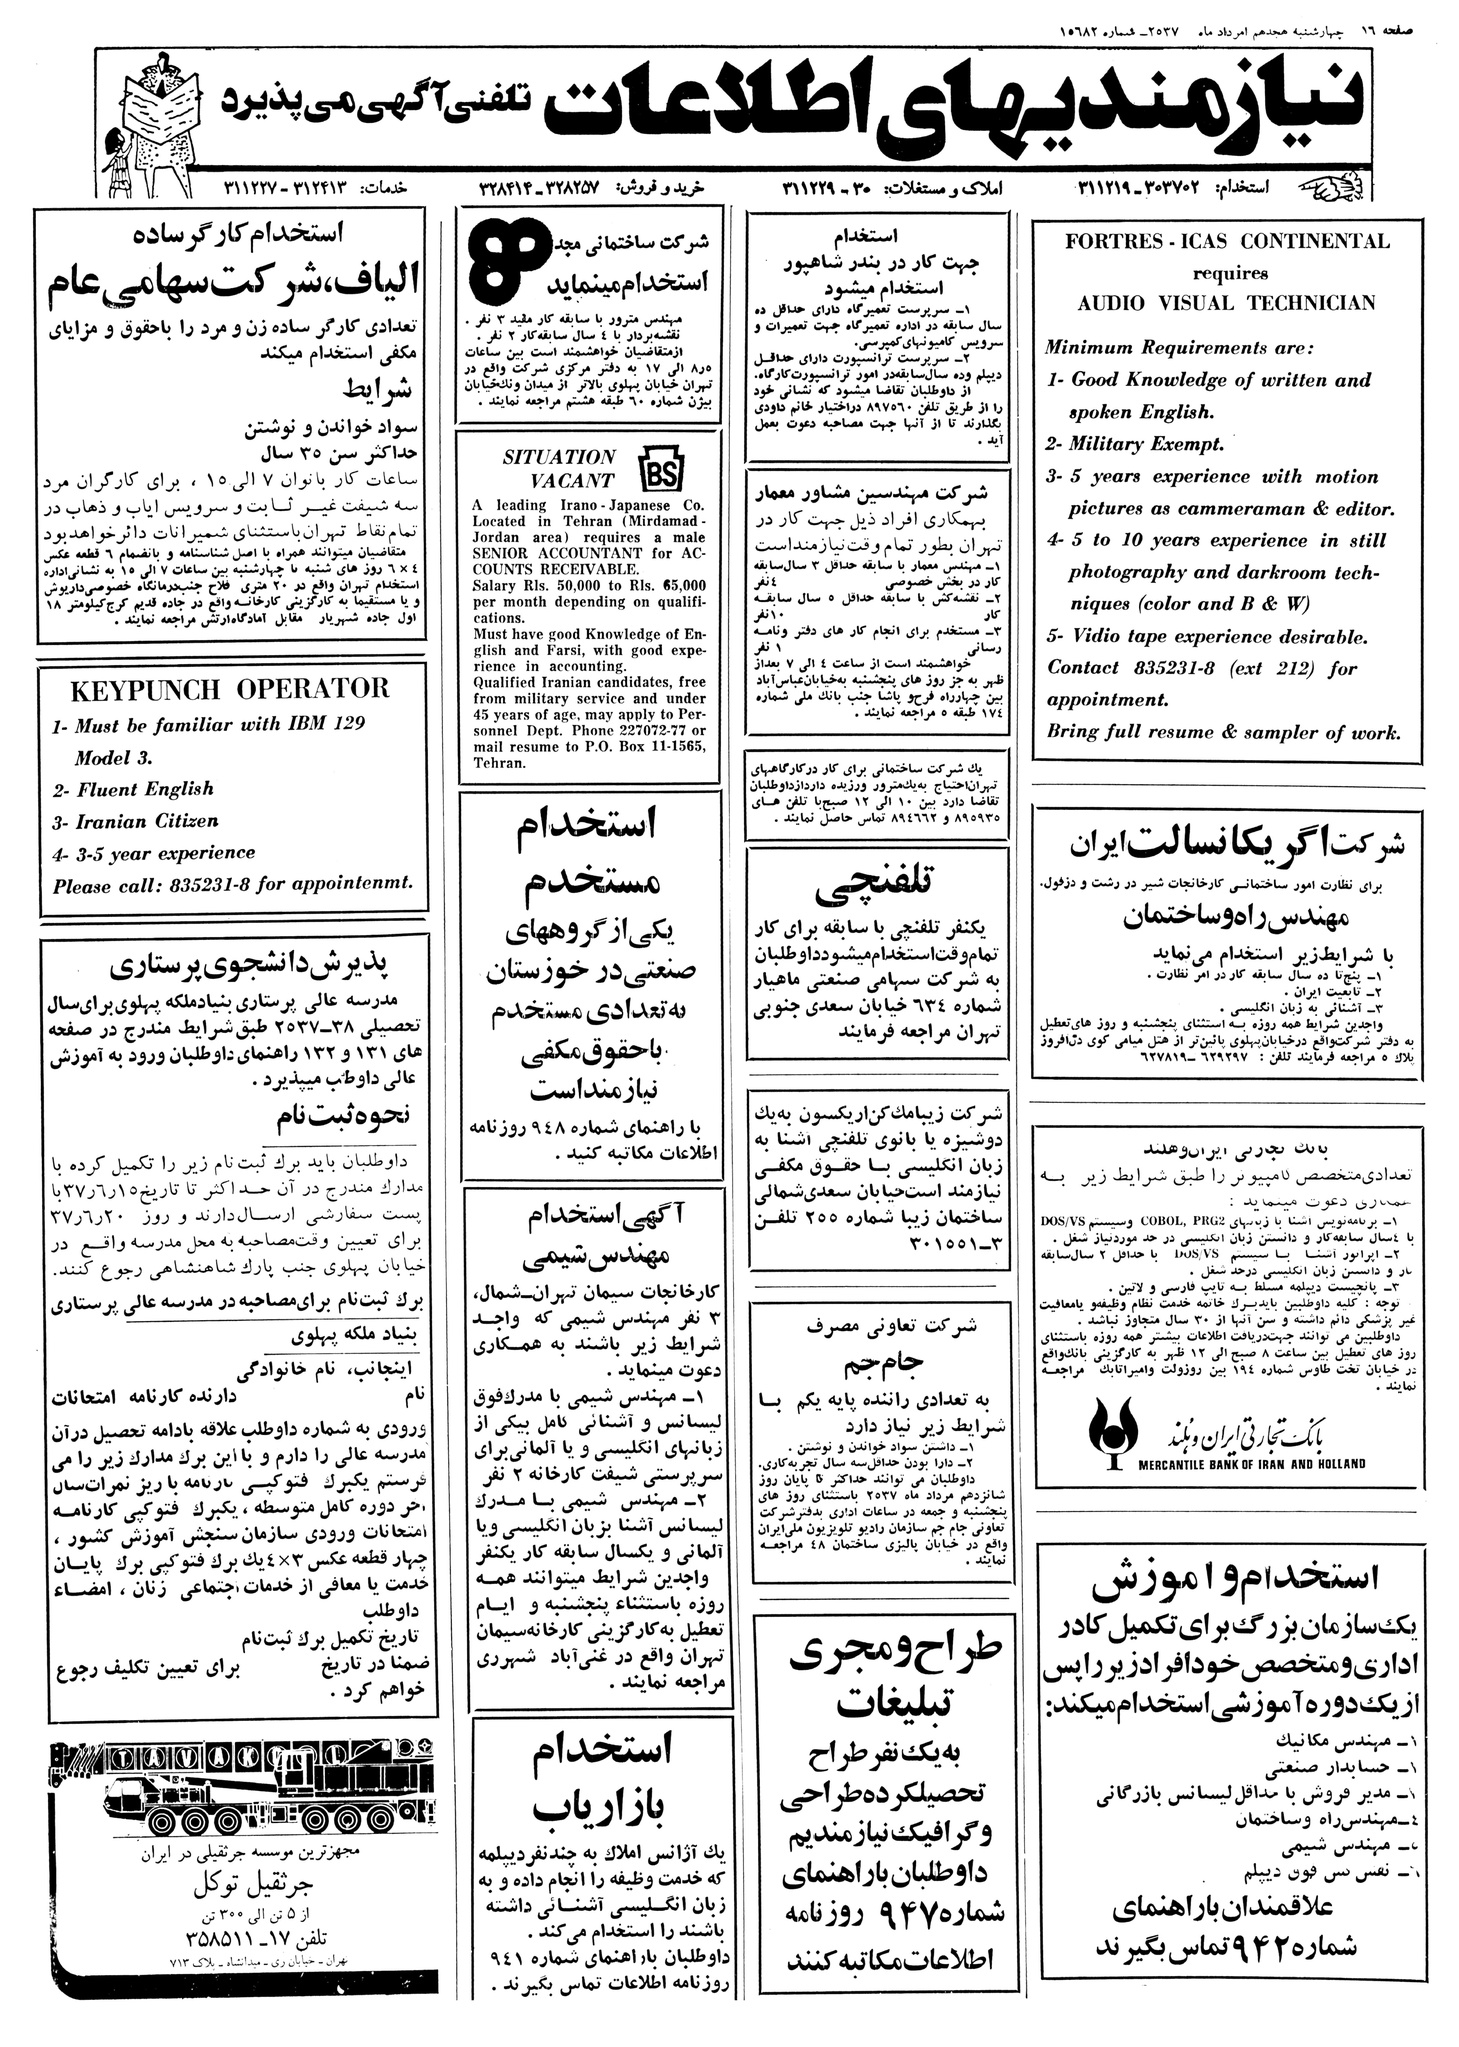 صفحه ۱۶ چهارشنبه هجدهم امرداد ماه ۲۵۳۷ـ شماره ۱۵۶۸۲
نیازمندیهای اطلاعات تلفنی آگهی می‌پذیرد
استخدام: ۳۰۳۷۰۲-۳۱۱۲۱۹
املاک و مستغلات: ۳۰-۳۱۱۲۲۹
خرید و فروش: ۳۲۸۲۵۷-۳۲۸۴۱۴
خدمات: ۳۱۲۴۱۳-۳۱۱۲۲۷
FORTRES - ICAS CONTINENTAL
requires
AUDIO VISUAL TECHNICIAN
Minimum Requirements are:
1- Good Knowledge of written and
spoken English.
2- Military Exempt.
3- 5 years experience with motion
pictures as cammeraman & editor.
4- 5 to 10 years experience in still
photography and darkroom tech-
niques (color and B & W)
5- Vidio tape experience desirable.
Contact 835231-8 (ext 212) for
appointment.
Bring full resume & sampler of work.
شرکت اگریکانسالت ایران
برای نظارت امور ساختمانی کارخانجات شیر در رشت و دزفول.
مهندس راه و ساختمان
با شرایط زیر استخدام می‌نماید
۱ـ پنج تا ده سال سابقه کار در امر نظارت .
۲ـ تابعیت ایران .
۳ـ آشنائی به زبان انگلیسی .
واجدین شرایط همه روزه به استثنای پنجشنبه و روز های تعطیل
به دفتر شرکت واقع در خیابان پهلوی پائین‌تر از هتل میامی کوی دل‌افروز
پلاك ۵ مراجعه فرمایند تلفن : ۶۲۹۲۹۷ ـ۶۲۷۸۱۹
بانک تجارتی ایران و هلند
تعدادی متخصص کامپیوتر را طبق شرایط زیر به
همکاری دعوت مینماید :
۱ـ برنامه‌نویس آشنا با زبانهای COBOL, PRG2 وسیستم DOS/VS
با ٤ سال سابقه کار و دانستن زبان انگلیسی در حد مورد نیاز شغل .
۲ـ اپراتور آشنا با سیستم DOS/VS با حداقل ۲ سال سابقه
کار و دانستن زبان انگلیسی در حد شغل .
۳ـ پانچیست دیپلمه مسلط به تایپ فارسی و لاتین .
توجه : کلیه داوطلبین باید برك خاتمه خدمت نظام وظیفه و یا معافیت
غیر پزشکی دائم داشته و سن آنها از ۳۰ سال متجاوز نباشد .
داوطلبین می توانند جهت دریافت اطلاعات بیشتر همه روزه باستثنای
روز های تعطیل بین ساعت ۸ صبح الی ۱۲ ظهر به کارگزینی بانک واقع
در خیابان تخت طاوس شماره ۱۹٤ بین روزولت وامیراتابک مراجعه
نمایند .
بانک تجارتی ایران و هلند
MERCANTILE BANK OF IRAN AND HOLLAND
استخدام و اموزش
یک سازمان بزرگ برای تکمیل کادر
اداری و متخصص خود افراد زیر را پس
از یک دوره آموزشی استخدام میکند:
۱ـ مهندس مکانیك
۱ـ حسابدار صنعتی
مدیر فروش با حداقل لیسانس بازرگانی
٤ـ مهندس راه وساختمان
مهندس شیمی
فوق دیپلم
علاقمندان با راهنمای
شماره ۹۴۲ تماس بگیرند
استخدام
جهت کار در بندر شاهپور
استخدام میشود
۱ـ سرپرست تعمیرگاه دارای حداقل ده
سال سابقه در اداره تعمیرگاه جهت تعمیرات و
سرویس کامیونهای کمپرسی.
۲ـ سرپرست ترانسپورت دارای حداقل
دیپلم وده سال سابقه در امور ترانسپورت کارگاه.
از داوطلبان تقاضا میشود که نشانی خود
را از طریق تلفن ۸۹۷۵۶۰ دراختیار خانم داودی
بگذارند تا از آنها جهت مصاحبه دعوت بعمل
آید .
شرکت مهندسین مشاور معمار
بهمکاری افراد ذیل جهت کار در
تهران بطور تمام وقت نیازمند است
۱ـ مهندس معمار با سابقه حداقل ۳ سال سابقه
کار در بخش خصوصی ٤ نفر
۲ـ نقشه‌کش با سابقه حداقل ۵ سال سابقه
کار ۱۰ نفر
۳ـ مستخدم برای انجام کار های دفتر ونامه
رسانی ۱ نفر
خواهشمند است از ساعت ٤ الی ۷ بعداز
ظهر به جز روز های پنجشنبه به خیابان عباس آباد
بین چهارراه فرح و پاشا جنب بانك ملی شماره
۱۷٤ طبقه ۵ مراجعه نمایند .
یك شرکت ساختمانی برای کار درکارگاههای
تهران احتیاج به یك مترور ورزیده دارد از داوطلبان
تقاضا دارد بین ۱۰ الی ۱۲ صبح با تلفن های
۸۹۵۹۳۵ و ۸۹٤۶۶۲ تماس حاصل نمایند .
تلفنچی
یکنفر تلفنچی با سابقه برای کار
تمام وقت استخدام میشود داوطلبان
به شرکت سهامی صنعتی ماهیار
شماره ۶۳٤ خیابان سعدی جنوبی
تهران مراجعه فرمایند
شرکت زیبامك کن اریکسون به یك
دوشیزه یا بانوی تلفنچی آشنا به
زبان انگلیسی با حقوق مکفی
نیازمند است خیابان سعدی شمالی
ساختمان زیبا شماره ۲۵۵ تلفن
۳ـ۳۰۱۵۵۱
شرکت تعاونی مصرف
جام جم
به تعدادی راننده پایه یکم با
شرایط زیر نیاز دارد
۱ـ داشتن سواد خواندن و نوشتن .
۲ـ دارا بودن حداقل سه سال تجربه کاری.
داوطلبان می توانند حداکثر تا پایان روز
شانزدهم مرداد ماه ۲۵۳۷ باستثنای روز های
پنجشنبه و جمعه در ساعات اداری بدفتر شرکت
تعاونی جام جم سازمان رادیو تلویزیون ملی ایران
واقع در خیابان پالیزی ساختمان ٤۸ مراجعه
نمایند .
طراح و مجری
تبلیغات
به یک نفر طراح
تحصیلکرده طراحی
و گرافیک نیازمندیم
داوطلبان با راهنمای
شماره ۹۴۷ روزنامه
اطلاعات مکاتبه کنند
شرکت ساختمانی مجد
استخدام مینماید
مهندس مترور با سابقه کار مفید ۳ نفر .
نقشه‌بردار با ٤ سال سابقه کار ۲ نفر .
ازمتقاضیان خواهشمند است بین ساعات
۸ر۵ الی ۱۷ به دفتر مرکزی شرکت واقع در
تهران خیابان پهلوی بالاتر از میدان ونك خیابان
بیژن شماره ۶۰ طبقه هشتم مراجعه نمایند .
SITUATION
VACANT
BS
A leading Irano - Japanese Co.
Located in Tehran (Mirdamad -
Jordan area) requires a male
SENIOR ACCOUNTANT for AC-
COUNTS RECEIVABLE.
Salary Rls. 50,000 to Rls. 65,000
per month depending on qualifi-
cations.
Must have good Knowledge of En-
glish and Farsi, with good expe-
rience in accounting.
Qualified Iranian candidates, free
from military service and under
45 years of age, may apply to Per-
sonnel Dept. Phone 227072-77 or
mail resume to P.O. Box 11-1565,
Tehran.
استخدام
مستخدم
یکی از گروههای
صنعتی در خوزستان
به تعدادی مستخدم
با حقوق مکفی
نیازمند است
با راهنمای شماره ۹٤۸ روزنامه
اطلاعات مکاتبه کنید .
آگهی استخدام
مهندس شیمی
کارخانجات سیمان تهران‌ـ‌شمال،
۳ نفر مهندس شیمی که واجد
شرایط زیر باشند به همکاری
دعوت مینماید .
۱ـ مهندس شیمی با مدرك فوق
لیسانس و آشنائی کامل بیکی از
زبانهای انگلیسی و یا آلمانی برای
سرپرستی شیفت کارخانه ۲ نفر
۲ـ مهندس شیمی با مدرك
لیسانس آشنا بزبان انگلیسی ویا
آلمانی و یکسال سابقه کار یکنفر
واجدین شرایط میتوانند همه
روزه باستثناء پنجشنبه و ایام
تعطیل به کارگزینی کارخانه سیمان
تهران واقع در غنی‌آباد شهرری
مراجعه نمایند .
استخدام
بازاریاب
یك آژانس املاك به چند نفر دیپلمه
که خدمت وظیفه را انجام داده و به
زبان انگلیسی آشنائی داشته
باشند را استخدام می‌کند .
داوطلبان باراهنمای شماره ۹٤۱
روزنامه اطلاعات تماس بگیرند .
استخدام کارگر ساده
الیاف، شرکت سهامی عام
تعدادی کارگر ساده زن و مرد را باحقوق و مزایای
مکفی استخدام میکند
شرایط
سواد خواندن و نوشتن
حداکثر سن ۳۵ سال
ساعات کار بانوان ۷ الی ۱۵ ، برای کارگران مرد
سه شیفت غیر ثابت و سرویس ایاب و ذهاب در
تمام نقاط تهران باستثنای شمیرانات دائر خواهد بود
متقاضیان میتوانند همراه با اصل شناسنامه و بانضمام ۶ قطعه عکس
٤×۶ روز های شنبه تا چهارشنبه بین ساعات ۷ الی ۱۵ به نشانی اداره
استخدام تهران واقع در ۲۰ متری فلاح جنب درمانگاه خصوصی داریوش
و یا مستقیما به کارگزینی کارخانه واقع در جاده قدیم کرج کیلومتر ۱۸
اول جاده شهریار مقابل آمادگاه ارتش مراجعه نمایند .
KEYPUNCH OPERATOR
1- Must be familiar with IBM 129
Model 3.
2- Fluent English
3- Iranian Citizen
4- 3-5 year experience
Please call: 835231-8 for appointenmt.
پذیرش دانشجوی پرستاری
مدرسه عالی پرستاری بنیاد ملکه پهلوی برای سال
تحصیلی ۳۸ـ۲۵۳۷ طبق شرایط مندرج در صفحه
های ۱۳۱ و ۱۳۲ راهنمای داوطلبان ورود به آموزش
عالی داوطلب میپذیرد .
نحوه ثبت نام
داوطلبان باید برك ثبت نام زیر را تکمیل کرده با
مدارك مندرج در آن حداکثر تا تاریخ ۱۵ر۶ر۳۷ با
پست سفارشی ارسال دارند و روز ۲۰ر۶ر۳۷
برای تعیین وقت مصاحبه به محل مدرسه واقع در
خیابان پهلوی جنب پارك شاهنشاهی رجوع کنند.
برك ثبت نام برای مصاحبه در مدرسه عالی پرستاری
بنیاد ملکه پهلوی
اینجانب، نام خانوادگی
نام دارنده کارنامه امتحانات
ورودی به شماره داوطلب علاقه بادامه تحصیل در آن
مدرسه عالی را دارم و با این برك مدارك زیر را می
فرستم یکبرك فتوکپی کارنامه با ریز نمرات سال
آخر دوره کامل متوسطه ، یکبرك فتوکپی کارنامه
امتحانات ورودی سازمان سنجش آموزش کشور ،
چهار قطعه عکس ۳×٤ یك برك فتوکپی برك پایان
خدمت یا معافی از خدمات اجتماعی زنان ، امضاء
داوطلب
تاریخ تکمیل برك ثبت نام
ضمنا در تاریخ برای تعیین تکلیف رجوع
خواهم کرد .
TAVAKOL
مجهزترین موسسه جرثقیلی در ایران
جرثقیل توکل
از ۵ تن الی ۳۰۰ تن
تلفن ۱۷ـ۳۵۸۵۱۱
تهران - خیابان ری - میدانشاه - پلاک ۷۱۳